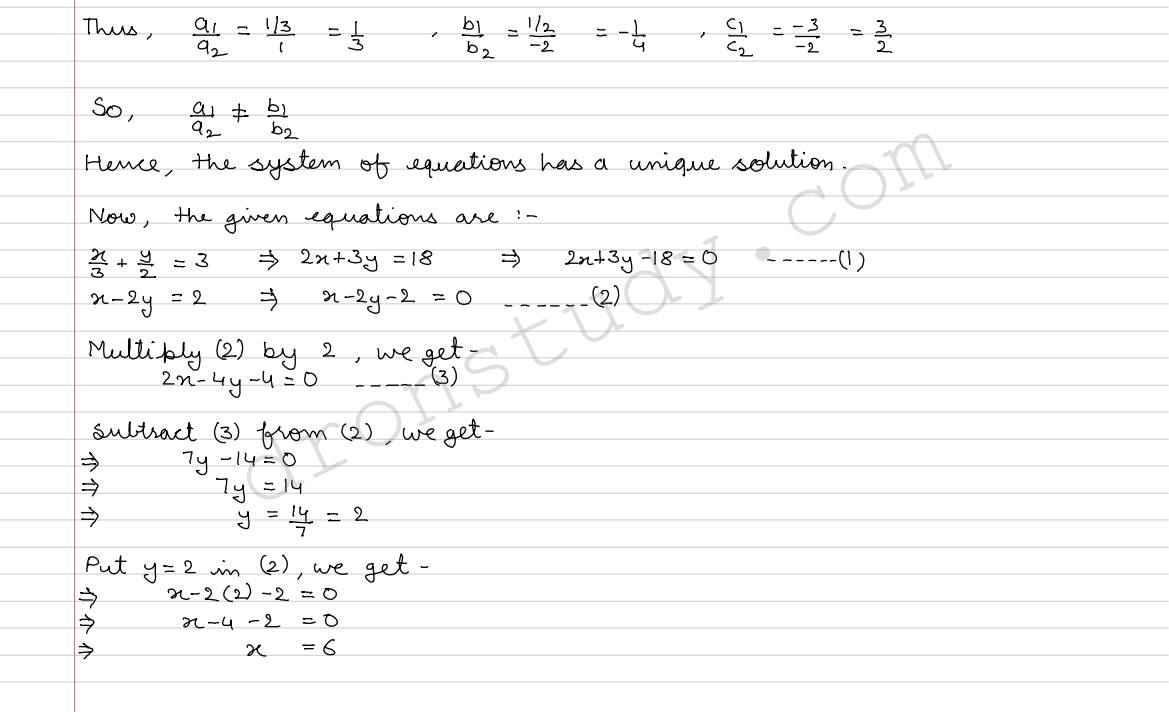 Thus, a1/a2 = 1/3/1 = 1/3 , b1/b2 = 1/2/-2 = -1/4 , c1/c2 = -3/-2 = 3/2
So, a1/a2 ≠ b1/b2
Hence, the system of equations has a unique solution.
Now, the given equations are :-
x/3 + y/2 = 3 ⇒ 2x+3y = 18 ⇒ 2x+3y-18 = 0 ------(1)
x-2y = 2 ⇒ x-2y-2 = 0 ------(2)
Multiply (2) by 2, we get-
2x-4y-4 = 0 -----(3)
Subtract (3) from (2), we get-
⇒ 7y-14 = 0
⇒ 7y = 14
⇒ y = 14/7 = 2
Put y=2 in (2), we get-
⇒ x-2(2)-2 = 0
⇒ x-4-2 = 0
⇒ x = 6
dronstudy.com